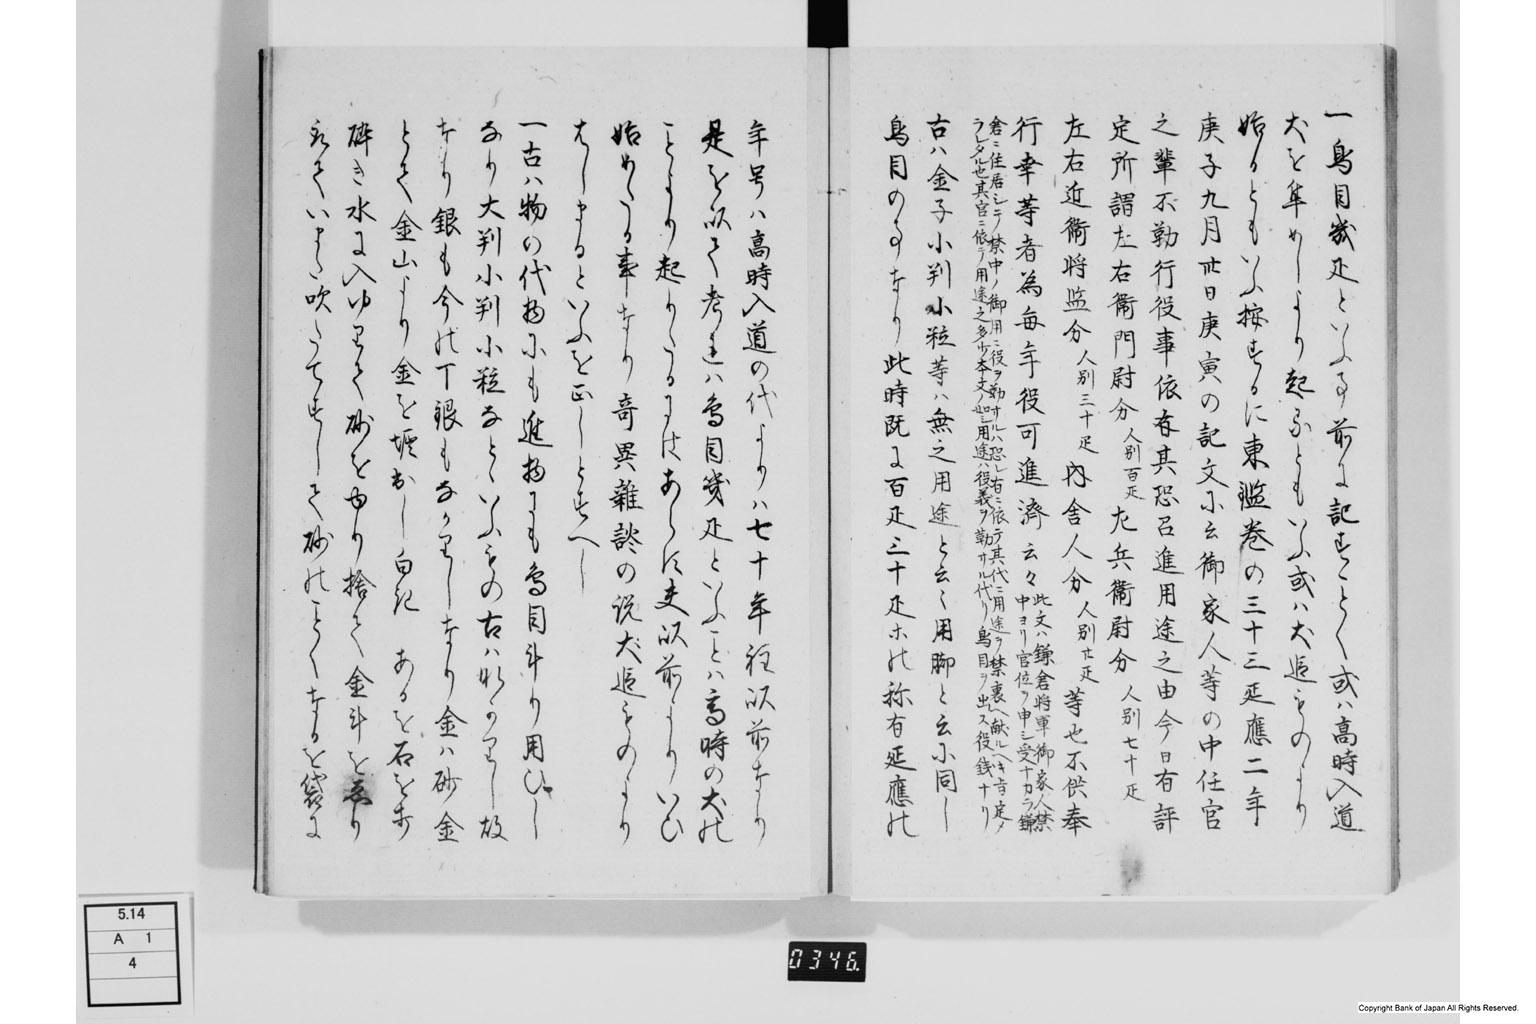 一鳥目幾疋といふ事前に記すことく或ハ高時入道
犬を集めしより起るともいふ或ハ犬追ものより
始るともいふ按するに東鑑巻の三十三延應二年
庚子九月卅日庚寅の記文に云御家人等の中任官
之輩不勤行役事依有其恐召進用途之由今日有評
定所謂左右衛門尉分 人別百疋 左兵衛尉分 人別七十疋
左右近衛将監分 人別三十疋 内舎人分 人別廿疋 等也不供奉
行幸等者為毎年役可進濟云々 此文ハ鎌倉将軍御家人禁
中ヨリ官位ヲ申シ受ナカラ鎌
倉ニ住居シテ禁中ノ御用ニ役ヲ勤サルハ恐レ有ニ依テ其代ニ用途ヲ禁裏ヘ献ルヘキ旨定メ
ラレタル也其官ニ依テ用途之多少本文ノ如シ用途ハ役義ヲ勤サル代リ鳥目ヲ出ス役銭ナリ
古ハ金子小判小粒等ハ無之用途と云く用脚と云に同し
鳥目の事なり此時既に百疋三十疋ホの称有延應の
年号ハ高時入道の代よりハ七十年程以前なり
是を以て考れハ鳥目幾疋といふことハ高時の犬の
ことより起りたるにはあらす夫以前よりいひ
始めたる事なり奇異雑談の説犬追ものより
はしまるといふを正しとすへし
一古ハ物の代物にも進物にも鳥目斗り用ひし
なり大判小判小粒なといふもの古ハなかりし故
なり銀も今の丁銀もなかりしなり金ハ砂金
とて金山より金を堀出し白紀 あるを石を
砕き水に入ゆりて砂をゆり捨て金斗を
ていまた吹たてすして砂のことくなるを袋に